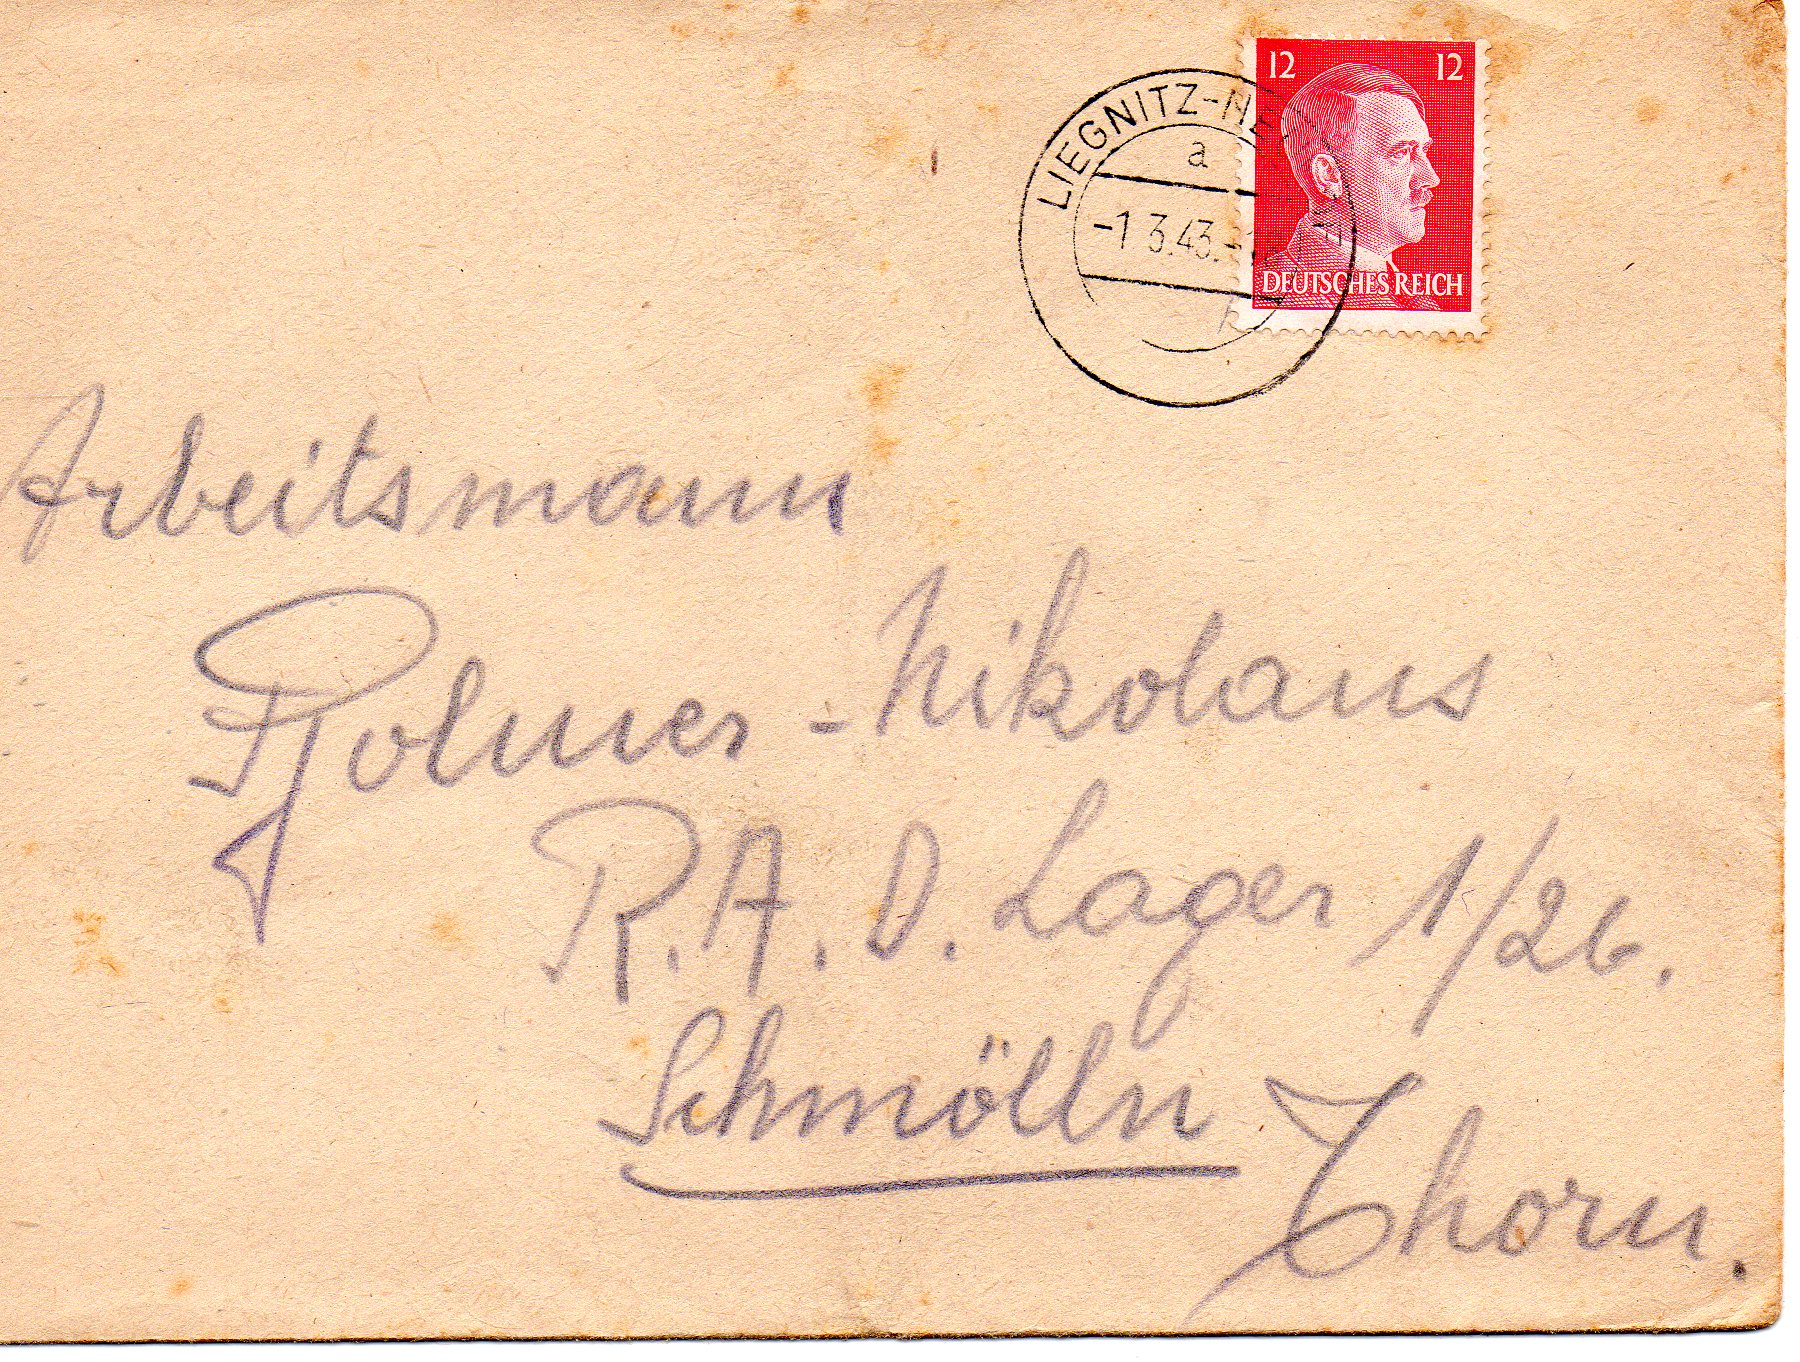 12 12
LIEGNITZ-
a
-1 3.43.
DEUTSCHES REICH
Arbeitsmann
Nikolaus
R.A.D. Lager 1/26.
Schmölln
Thorn.